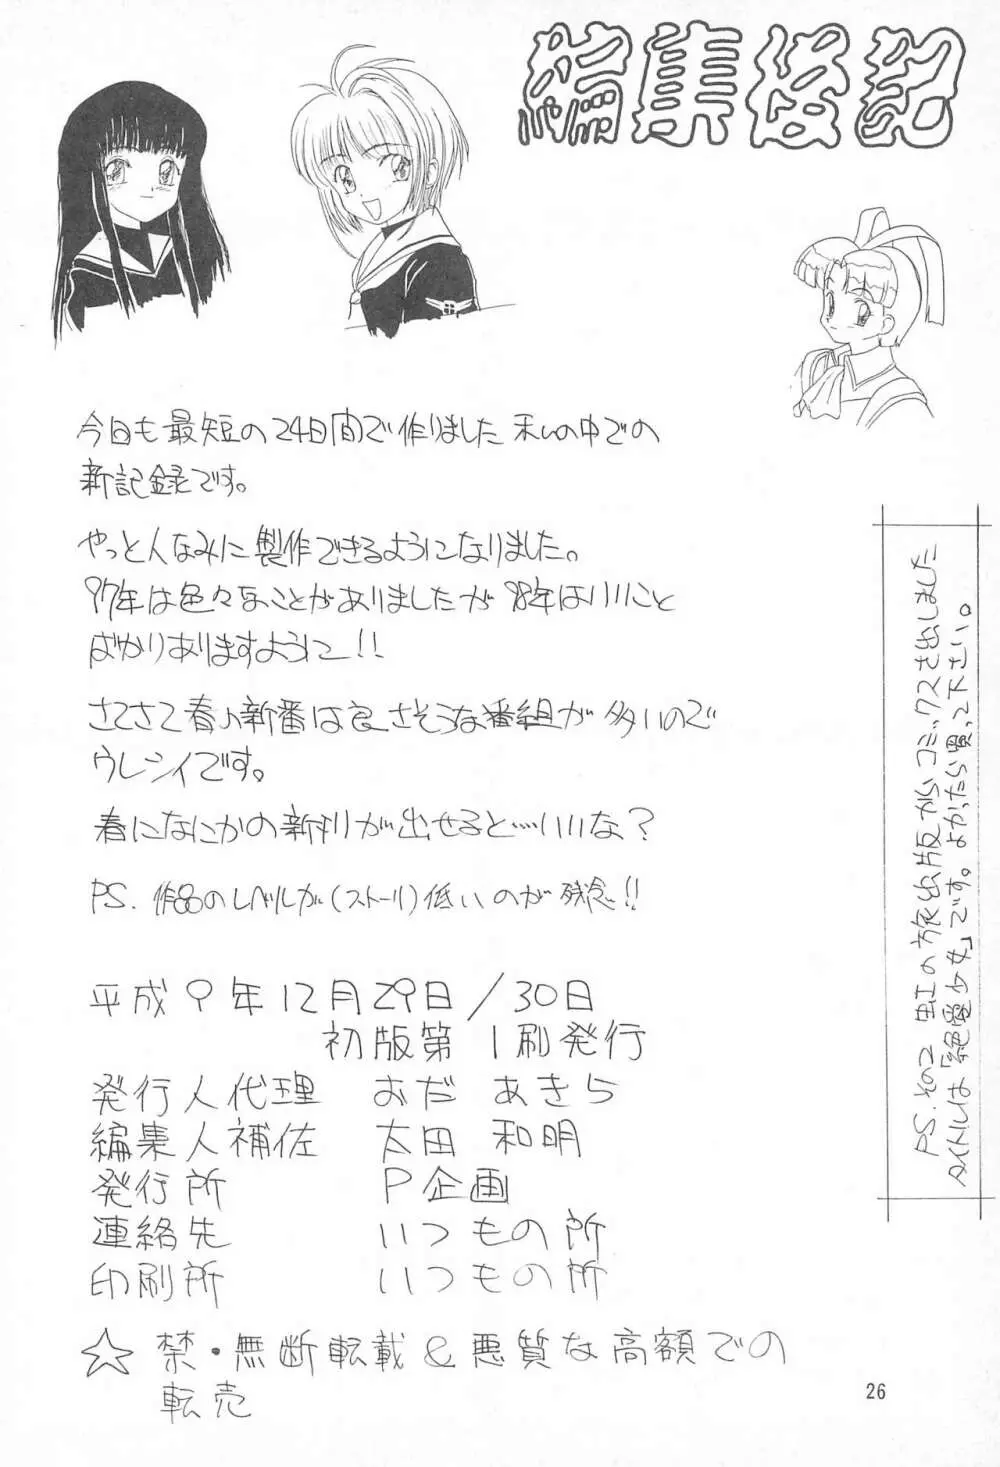 編集後記
今日も最短の24日間で作りました 私の中での
新記録です。
やっと人なみに製作できるようになりました。
97年は色々なことがありましたが 98年はいいこと
ばかりありますように!!
さてさて春の新番は良さそうな番組が多いので
ウレシイです。
春になにかの新刊が出せると…いいな?
PS. 作品のレベルが(ストーリ)低いのが残念!!
平成9年12月29日/30日
初版第1刷発行
発行人代理 おだ あきら
編集人補佐 太田 和明
発行所 P企画
連絡先 いつもの所
印刷所 いつもの所
☆禁・無断転載&悪質な高額での
転売
PS.その2 虹の旅出版からコミックスを出しました
タイトルは「絶霊少女」です。よかったら買って下さい。
26